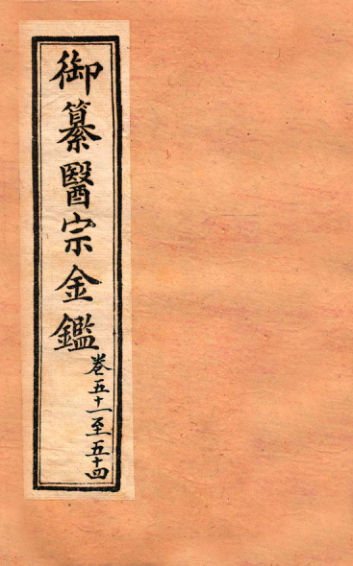 御纂醫宗金鑑
卷五十一至五十四